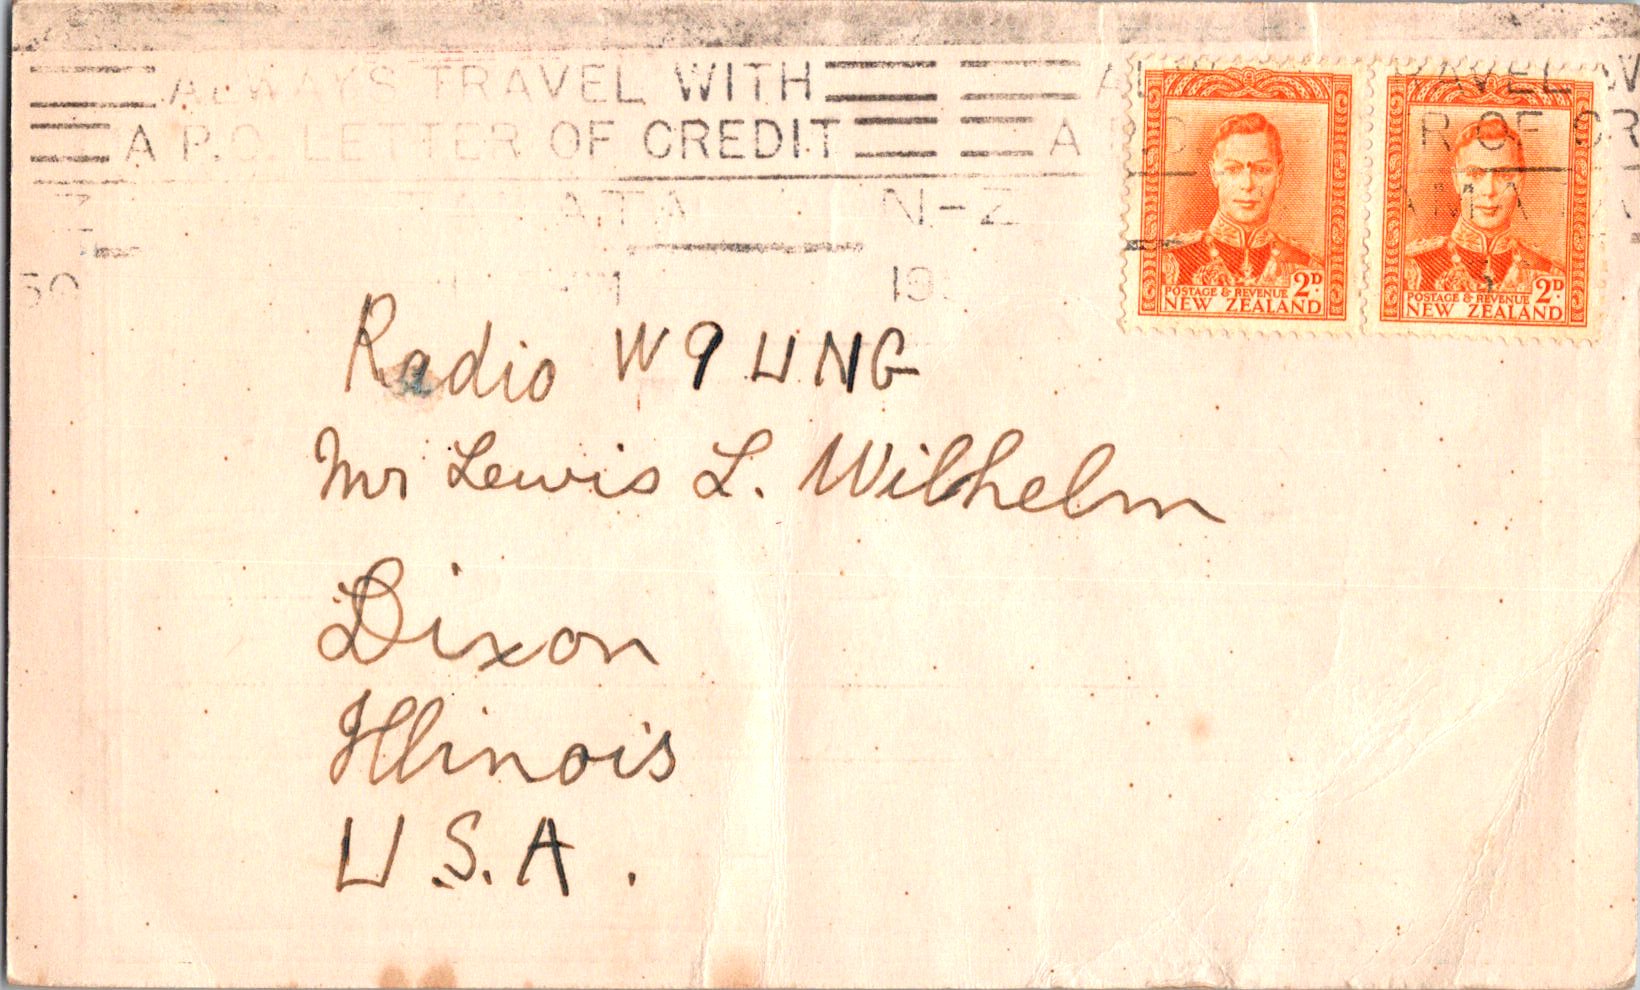 ALWAYS TRAVEL WITH
A P.O. LETTER OF CREDIT
N-Z
POSTAGE & REVENUE 2D
NEW ZEALAND
POSTAGE & REVENUE 2D
NEW ZEALAND
Radio W9UNG
Mr Lewis L. Wilhelm
Dixon
Illinois
U.S.A.